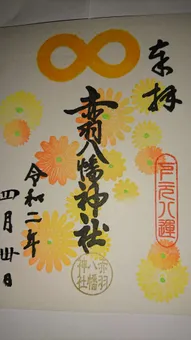 奉拝
赤羽八幡神社
令和二年
四月卅日
赤羽
八幡
神社